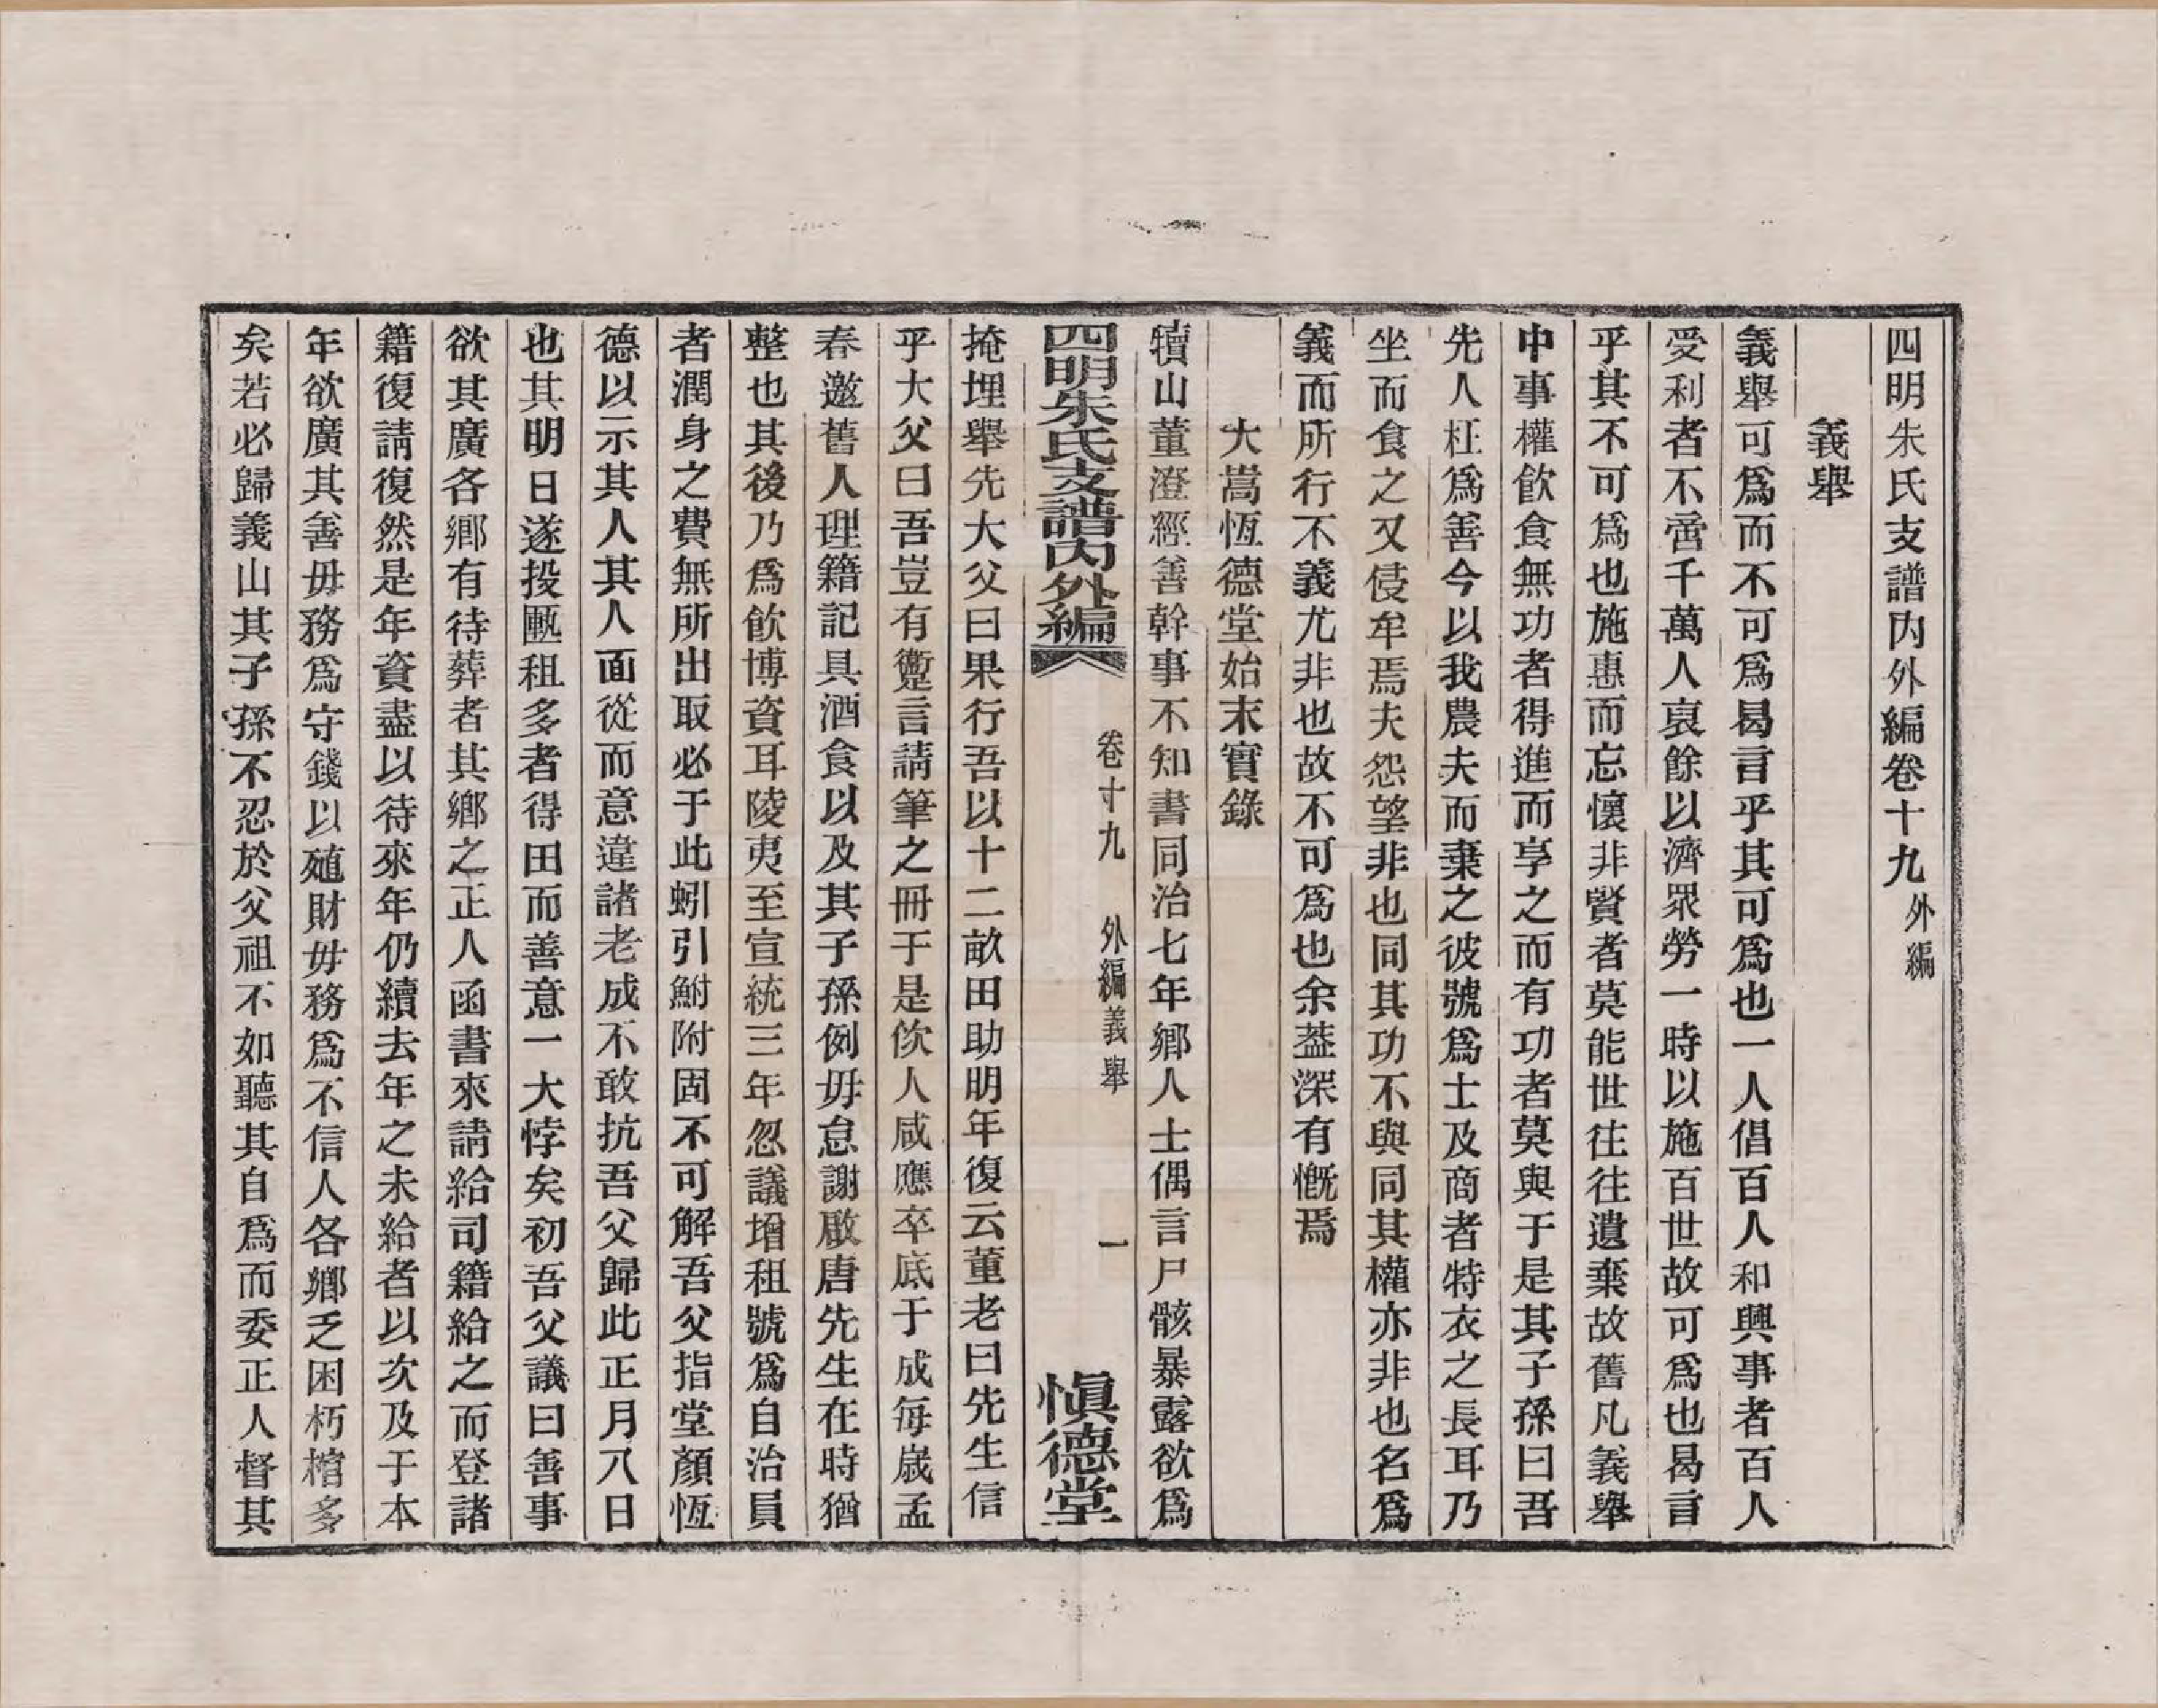 四明朱氏支譜內外編卷十九外編
義舉
義舉可爲而不可爲曷言乎其可爲也一人倡百人和興事者百人
受利者不啻千萬人裒餘以濟眾勞一時以施百世故可爲也曷言
乎其不可爲也施惠而忘懷非賢者莫能世往往遺棄故舊凡義舉
中事權飲食無功者得進而享之而有功者莫與于是其子孫曰吾
先人枉爲善今以我農夫而棄之彼號爲士及商者特衣之長耳乃
坐而食之又侵牟焉夫怨望非也同其功不與同其權亦非也名爲
義而所行不義尤非也故不可爲也余葢深有慨焉
大嵩恆德堂始末實錄
犢山董澄經善幹事不知書同治七年鄉人士偶言尸骸暴露欲爲
四明朱氏支譜內外編
卷十九
外編義舉
一
愼德堂
掩埋舉先大父曰果行吾以十二畝田助明年復云董老曰先生信
乎大父曰吾豈有躗言請筆之冊于是佽人咸應卒底于成每歲孟
春邀舊人理籍記具酒食以及其子孫例毋怠謝啟唐先生在時猶
整也其後乃爲飮博資耳陵夷至宣統三年忽議增租號爲自治員
者潤身之費無所出取必于此蚓引鮒附固不可解吾父指堂顏恆
德以示其人其人面從而意違諸老成不敢抗吾父歸此正月八日
也其明日遂投匭租多者得田而善意一大悖矣初吾父議曰善事
欲其廣各鄉有待葬者其鄉之正人函書來請給司籍給之而登諸
籍復請復然是年資盡以待來年仍續去年之未給者以次及于本
年欲廣其善毋務爲守錢以殖財毋務爲不信人各鄉乏困朽棺多
矣若必歸義山其子孫不忍於父祖不如聽其自爲而委正人督其